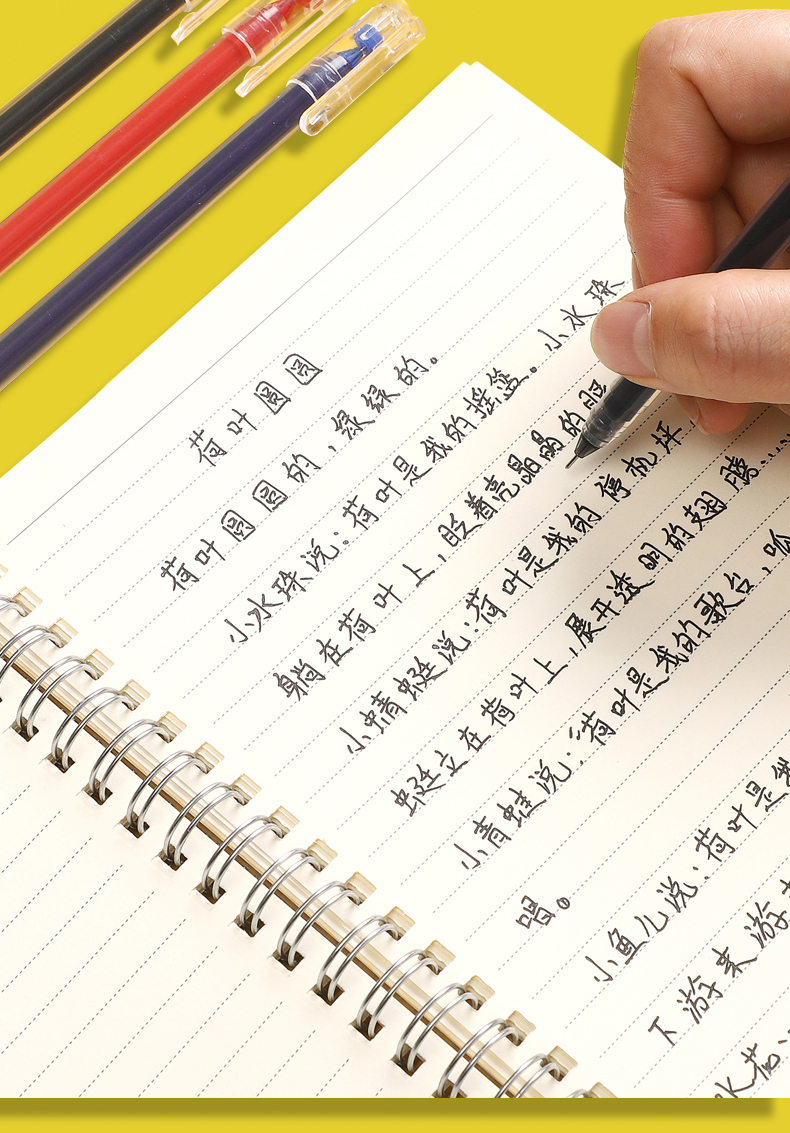 荷叶圆圆
荷叶圆圆的,绿绿的。
小水珠说:荷叶是我的摇篮。小水珠
躺在荷叶上,眨着亮晶晶的眼
小蜻蜓说:荷叶是我的停机坪,
蜓立在荷叶上,展开透明的翅
小青蛙说:荷叶是我的歌台,呱
唱。
小鱼儿说:荷叶是我
下游来游
水花